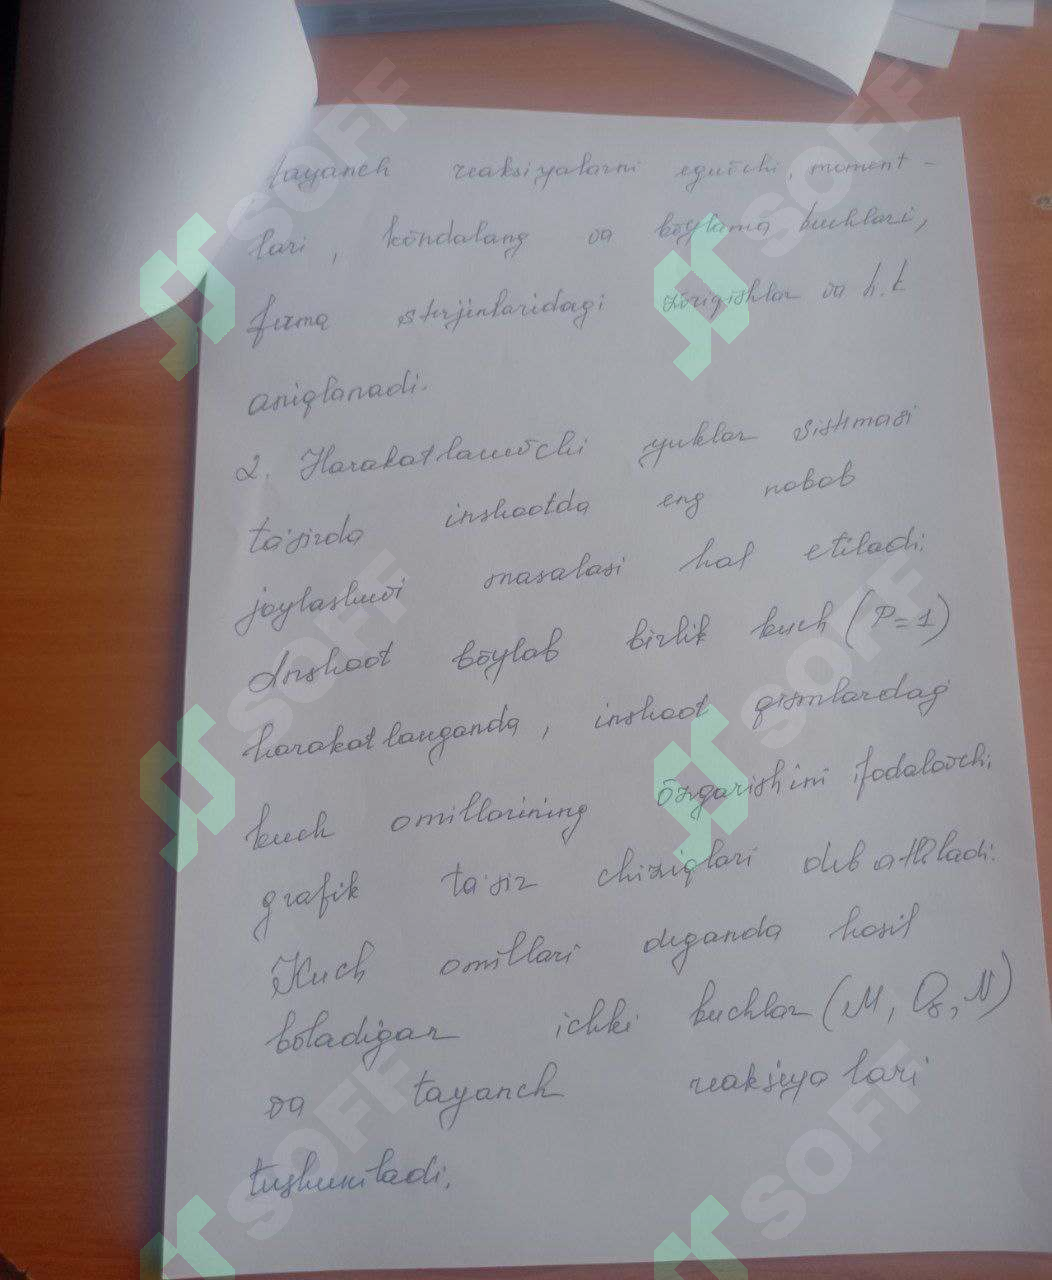 tayanch reaksiyalarni eguvchi, moment-
lari, kōndalang va bōylama kuchlari,
ferma sterjinlaridagi zōriqishlar va h.k
aniqlanadi.
2. Harakatlanuvchi yuklar sistemasi
ta'sirda inshootda eng nobob
joylashuvi masalasi hal etiladi.
Inshoot bōylab birlik kuch (P=1)
harakatlanganda, inshoot qismlardagi
kuch omillarining ōzgarishini ifodalovchi
grafik ta'sir chiziqlari deb atiladi.
Kuch omillari deganda hosil
bōladigan ichki kuchlar (M, Q, N)
va tayanch reaksiyalari
tushuniladi.
SOFF
SOFF
SOFF
SOFF
SOFF
SOFF